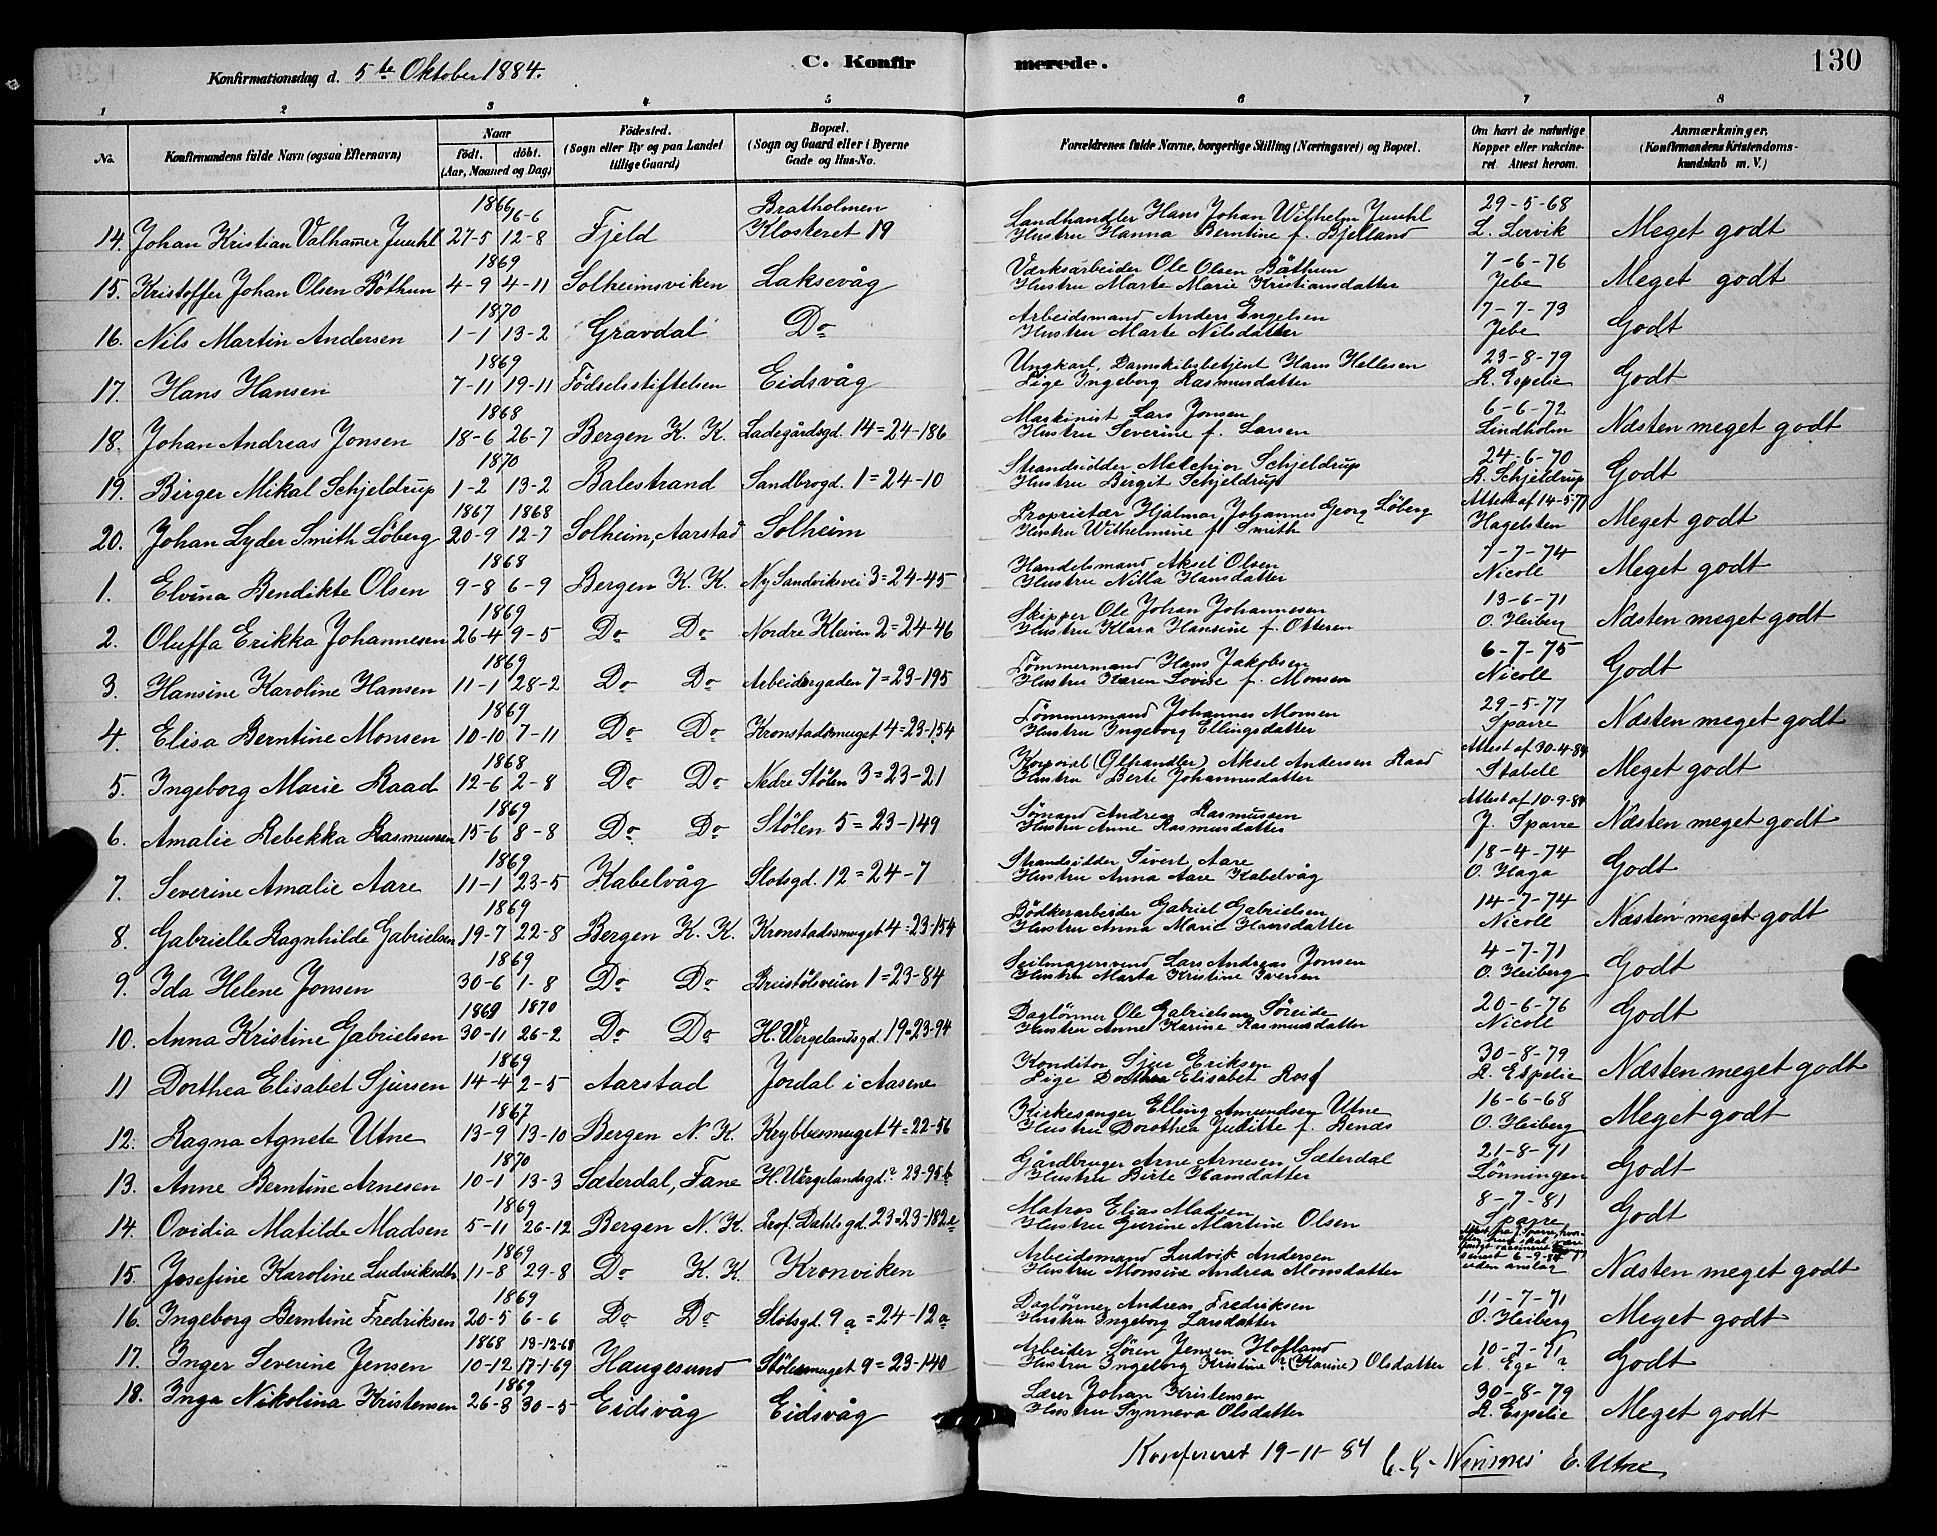 130
Konfirmationsdag d. 5te Oktober 1884.
C. Konfirmerede.
1 2 3 4 5 6 7 8
No. Konfirmandens fulde Navn (ogsaa Efternavn) Naar födt. döbt. (Aar, Maaned og Dag) Födested. (Sogn eller By og paa Landet tillige Gaard) Bopæl. (Sogn og Gaard eller i Byerne Gade og Hus-No. Forældrenes fulde Navne, borgerlige Stilling (Næringsvei) og Bopæl. Om havt de naturlige Kopper eller vakcineret. Attest herom. Anmærkninger. (Konfirmandens Kristendomskundskab m. V.)
1866 16-6 Bratholmen Landhandler Hans Johan Wilhelm Juuhl 29-5-68
14. Johan Kristian Valhamer Juuhl 27-5 12-8 Fjeld Klosteret 19 Hustru Hanna Berntine f. Bjelland L. Lervik Meget godt
1869 Værksarbeider Ole Olsen Böthun 7-6-76
15. Kristoffer Johan Olsen Böthun 4-9 4-11 Solheimsviken Laksevåg Hustru Marte Marie Kristiansdatter Jebe Meget godt
1870 Arbeidsmand Anders Engelsen 7-7-73
16. Nils Martin Andersen 1-1 13-2 Gravdal Do Hustru Marte Nilsdatter Jebe Godt
1869 Ungkarl, Damskibsbetjent Hans Hellesen 23-8-79
17. Hans Hansen 7-11 19-11 Födselsstiftelsen Eidsvåg Pige Ingeborg Rasmusdatter R. Espelie Godt
1868 Maskinist Lars Jonsen 6-6-72
18. Johan Andreas Jonsen 18-6 26-7 Bergen K. K. Ladegårdsgd. 14=24-186 Hustru Severine f. Larsen Lindholm Næsten meget godt
1870 Strandsidder Melchior Schjeldrup 24-6-70
19. Birger Mikal Schjeldrup 1-2 13-2 Balestrand Sandbrogd. 1=24-10 Hustru Birgit Schjeldrup R. Schjeldrup Godt
1867 1868 Proprietær Hjalmar Johannes Georg Löberg Attest af 14-5-77
20. Johan Lyder Smith Löberg 20-9 12-7 Solheim, Aarstad Solheim Hustru Wilhelmine f. Smith Hagelsten Meget godt
1868 Handelsmand Aksel Olsen 7-7-74
1. Elvina Bendikte Olsen 9-8 6-9 Bergen K. K. Ny Sandviksvei 3=24-45 Hustru Nilla Hansdatter Nicoll Meget godt
1869 Skipper Ole Johan Johannesen 13-6-71
2. Oluffa Erikka Johannesen 26-4 9-5 Do Do Nordre Kleiven 2=24-46 Hustru Klara Hansine f. Otteren O. Heiberg Næsten meget godt
1869 Tömmermand Hans Jakobsen 6-7-75
3. Hansine Karoline Hansen 11-1 28-2 Do Do Arbeidergaden 7=23-195 Hustru Karen Lovise f. Monsen Nicoll Godt
1869 Tömmermand Johannes Monsen 29-5-77
4. Elisa Berntine Monsen 10-10 7-11 Do Do Kronstadsmuget 4=23-154 Hustru Ingeborg Ellingsdatter Sparre Næsten meget godt
1868 Korporal (Ölhandler) Aksel Andersen Raad Attest af 30-4-84
5. Ingeborg Marie Raad 12-6 2-8 Do Do Nedre Stölen 3=23-21 Hustru Berte Johannesdatter Stabell Meget godt
1869 Sömand Andreas Rasmussen Attest af 10-9-84
6. Amalie Rebekka Rasmussen 15-6 8-8 Do Do Stölen 5=23-149 Hustru Anne Rasmusdatter J. Sparre Næsten meget godt
1869 Strandsidder Sivert Aare 18-4-74
7. Severine Amalie Aare 11-1 23-5 Kabelvåg Slotsgd. 12=24-7 Hustru Anna Aare Kabelvåg O. Haga Godt
1869 Bödkerarbeider Gabriel Gabrielsen 14-7-74
8. Gabrielle Ragnhilde Gabrielsen 19-7 22-8 Bergen K. K. Kronstadsmuget 4=23-154 Hustru Anna Marie Hansdatter Nicoll Næsten meget godt
1869 Seilmagersvend Lars Andreas Jonsen 4-7-71
9. Ida Helene Jonsen 30-6 1-8 Do Do Breistölsveien 1=23-84 Hustru Marta Kristine Iversen O. Heiberg Godt
1869 1870 Daglönner Ole Gabrielsen Söreide 20-6-76
10. Anna Kristine Gabrielsen 30-11 26-2 Do Do H. Wergelandsgd. 19=23-94 Hustru Anne Karine Rasmusdatter Nicoll Godt
1869 Konditor Sjur Eriksen 30-8-79
11 Dorthea Elisabet Sjursen 14-4 2-5 Aarstad Jordal i Aasene Pige Dorthea Elisabet Rosf R. Espelie Næsten meget godt
1867 Kirkesanger Elling Amundsen Utne 16-6-68
12. Ragna Agnete Utne 13-9 13-10 Bergen N. K. Krybbesmuget 4=22-56 Hustru Dorothea Juditte f. Benas O. Heiberg Meget godt
1870 Gårdbruger Arne Arnesen Sæterdal 21-8-71
13. Anne Berntine Arnesen 10-1 13-3 Sæterdal, Fane H. Wergelandsgd. ? 23-95b Hustru Birte Hansdatter Lönningen Godt
1869 Matros Elias Madsen 8-7-81
14. Ovidia Matilde Madsen 5-11 26-12 Bergen N. K. Prof. Dahls gd. 23=23-182e Hustru Gurine Martine Olsen Sparre Godt
1869 Arbeidsmand Ludvik Andersen senest 6-9-84
15. Josefine Karoline Ludviksdtr 11-8 29-8 Do K. K. Kronviken Hustru Monsine Andrea Monsdatter uden anslag Næsten meget godt
1869 Daglönner Andreas Fredriksen 11-7-71
16. Ingeborg Berntine Fredriksen 20-5 6-6 Do Do Slotsgd. 9a=24-12a Hustru Ingeborg Larsdatter O. Heiberg Meget godt
1868 13-12-68 Arbeider Sören Jensen Hofland 10-7-71
17. Inger Severine Jensen 10-12 17-1-69 Haugesund Stölesmuget 9=23-140 Hustru Ingeborg Kristine ? (Karine) Olsdatter A. Ege ? Godt
1869 Lærer Johan Kristensen 30-8-79
18. Inga Nikolina Kristensen 26-3 30-5 Eidsvåg Eidsvåg Hustru Synneva Olsdatter R. Espelie Meget godt
Konfereret 19-11-84 E. Utne